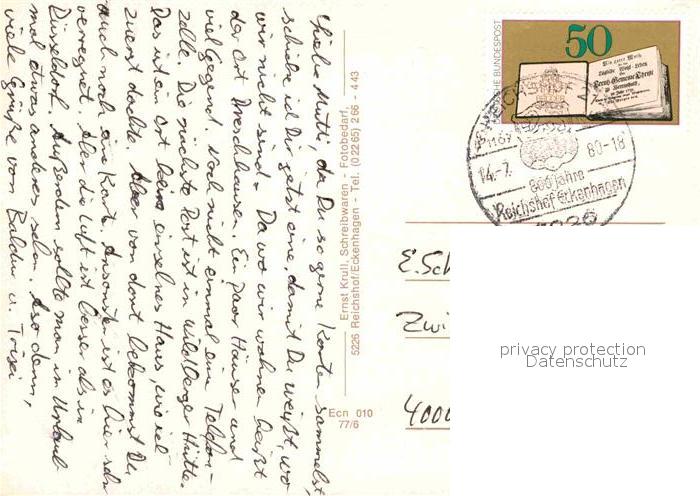 Liebe Mutti, da Du so gerne Karten sammelst,
schicke ich Dir jetzt eine, damit Du weißt, wo
wir nicht sind. Da wo wir wohnen heißt
der Ort Dreschhausen. Ein paar Häuser und
viel Gegend. Noch nicht einmal eine Telefon-
zelle. Die nächste Post ist in Wildberger Hütte.
Das ist ein Ort keine einzelnes Haus, wie ich
zuerst dachte. Aber von dort bekommst Du
auch noch eine Karte. Ansonsten ist es hier sehr
verregnet. Aber die Luft ist besser als in
Düsseldorf. Außerdem sollte man im Urlaub
mal etwas anderes sehen. Also dann,
viele Grüße von u.
Ernst Krull, Schreibwaren - Fotobedarf,
5226 Reichshof/Eckenhagen - Tel. (0 22 65) 2 66 - 4 43
Ecn 010
77/6
DEUTSCHE BUNDESPOST
50
14.-7. 80-18
800 Jahre
Reichshof Eckenhagen
5226
E. Sch
Zwi
4000
privacy protection
Datenschutz